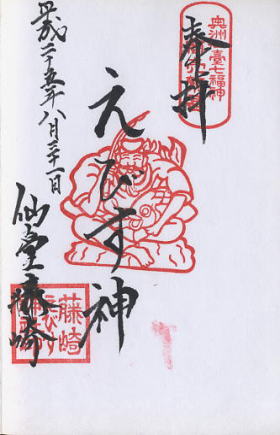 奉拝
奥州仙臺七福神
えびす神
平成二十五年八月三十一日
仙臺藤崎
藤崎
えびす